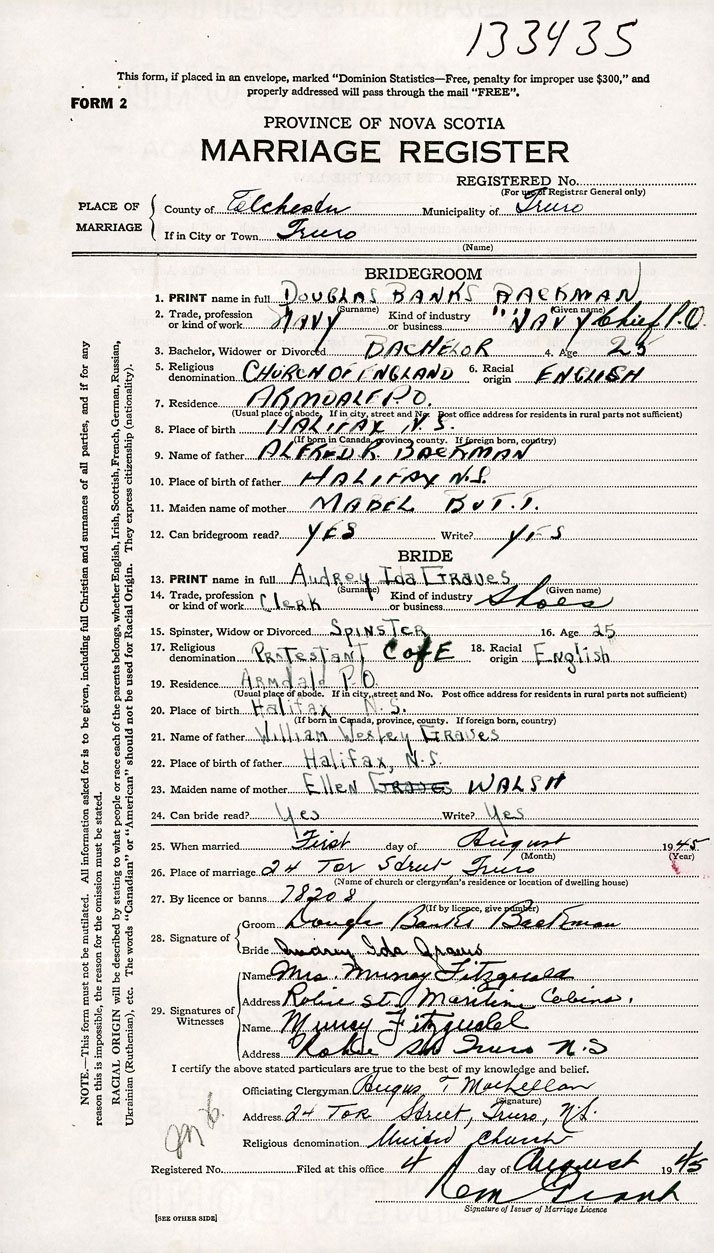 133435
This form, if placed in an envelope, marked "Dominion Statistics—Free, penalty for improper use $300," and
properly addressed will pass through the mail "FREE".
FORM 2
PROVINCE OF NOVA SCOTIA
MARRIAGE REGISTER
REGISTERED No.
(For use of Registrar General only)
PLACE OF MARRIAGE
County of Colchester Municipality of Truro
If in City or Town Truro
(Name)
BRIDEGROOM
1. PRINT name in full DOUGLAS BANKS BACKMAN
(Surname) (Given name)
2. Trade, profession or kind of work NAVY Kind of industry or business "NAVY Chief P.O.
3. Bachelor, Widower or Divorced BACHELOR 4. Age 25
5. Religious denomination CHURCH OF ENGLAND 6. Racial origin ENGLISH
7. Residence ARMDALE P.O.
(Usual place of abode. If in city, street and No. Post office address for residents in rural parts not sufficient)
8. Place of birth HALIFAX N.S.
(If born in Canada, province county. If foreign born, country)
9. Name of father ALFRED R. BACKMAN
10. Place of birth of father HALIFAX N.S.
11. Maiden name of mother MABEL BUTT.
12. Can bridegroom read? YES Write? YES
BRIDE
13. PRINT name in full Audrey Ida Graves
(Surname) (Given name)
14. Trade, profession or kind of work Clerk Kind of industry or business Shoes
15. Spinster, Widow or Divorced SPINSTER 16. Age 25
17. Religious denomination PROTESTANT C of E 18. Racial origin English
19. Residence Armdale P.O.
(Usual place of abode. If in city, street and No. Post office address for residents in rural parts not sufficient)
20. Place of birth Halifax N.S.
(If born in Canada, province, county. If foreign born, country)
21. Name of father William Wesley Graves
22. Place of birth of father Halifax, N.S.
23. Maiden name of mother Ellen Graves WALSH
24. Can bride read? Yes Write? Yes
25. When married First day of August 1945
(Month) (Year)
26. Place of marriage 24 Tor Street, Truro
(Name of church or clergyman's residence or location of dwelling house)
27. By licence or banns 78208
(If by licence, give number)
28. Signature of
Groom Douglas Banks Backman
Bride Audrey Ida Graves
29. Signatures of Witnesses
Name Mrs. Murray Fitzgerald
Address Robie St. Maritime Cabins.
Name Murray Fitzgerald
Address Robie St. Truro N.S
I certify the above stated particulars are true to the best of my knowledge and belief.
Officiating Clergyman Angus T MacLellan
(Signature)
Address 24 Tor Street, Truro, N.S.
Religious denomination United Church
Registered No. Filed at this office 4 day of August 1945
Grant
Signature of Issuer of Marriage Licence
[SEE OTHER SIDE]
NOTE.—This form must not be mutilated. All information asked for is to be given, including full Christian and surnames of all parties, and if for any
reason this is impossible, the reason for the omission must be stated.
RACIAL ORIGIN will be described by stating to what people or race each of the parents belongs, whether English, Irish, Scottish, French, German, Russian,
Ukrainian (Ruthenian), etc. The words "Canadian" or "American" should not be used for Racial Origin. They express citizenship (nationality).